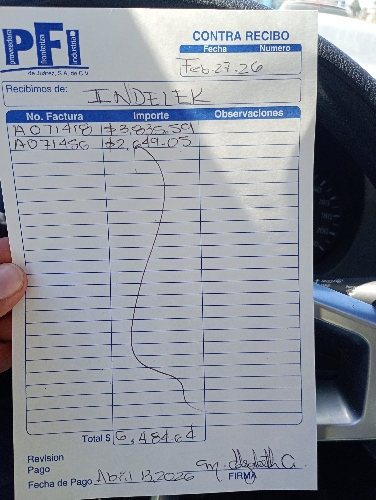 PFI
Proveedora
Fronteriza
Industrial
de Juárez, S.A. de C.V.
CONTRA RECIBO
Fecha Numero
Feb-27-26
Recibimos de: INDELEK
No. Factura Importe Observaciones
A071418 $3,835.59
A071456 $2,649-05
Total $ 6,484.64
Revision
Pago
Fecha de Pago Abril 13, 2026 FIRMA